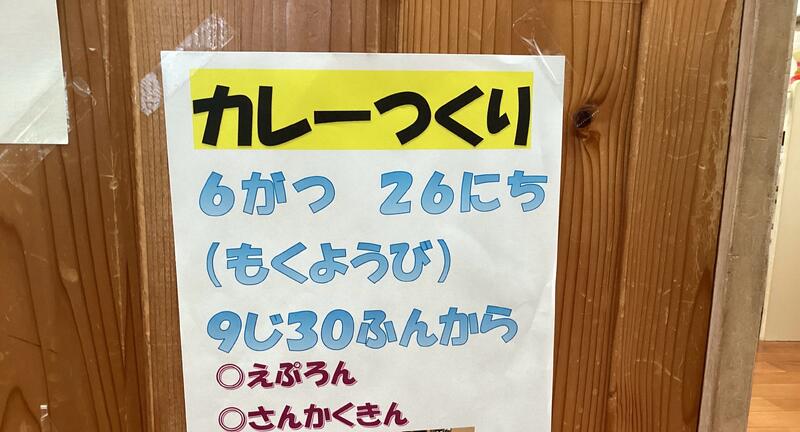 カレーつくり
6がつ 26にち
(もくようび)
9じ30ふんから
○えぷろん
○さんかくきん